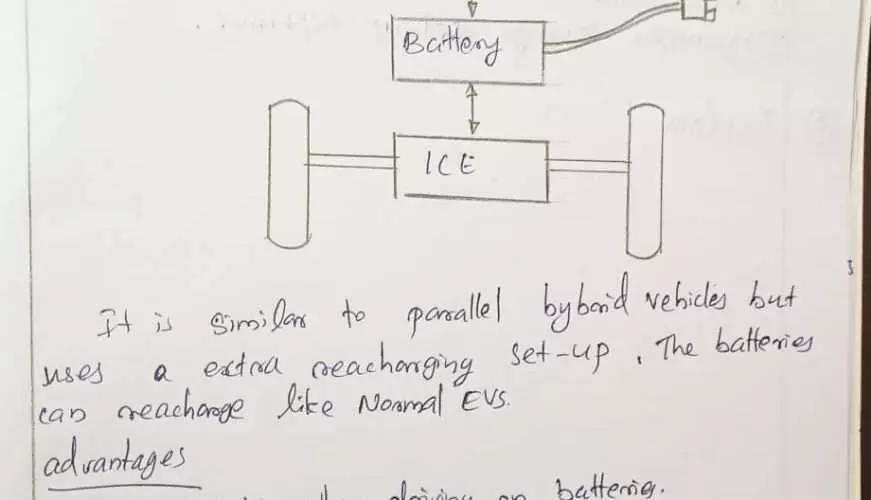 Battery
ICE
It is similar to parallel hybrid vehicles but
uses a extra reacharging set-up. The batteries
can reacharge like Normal EVs.
advantages
driving on batteries.